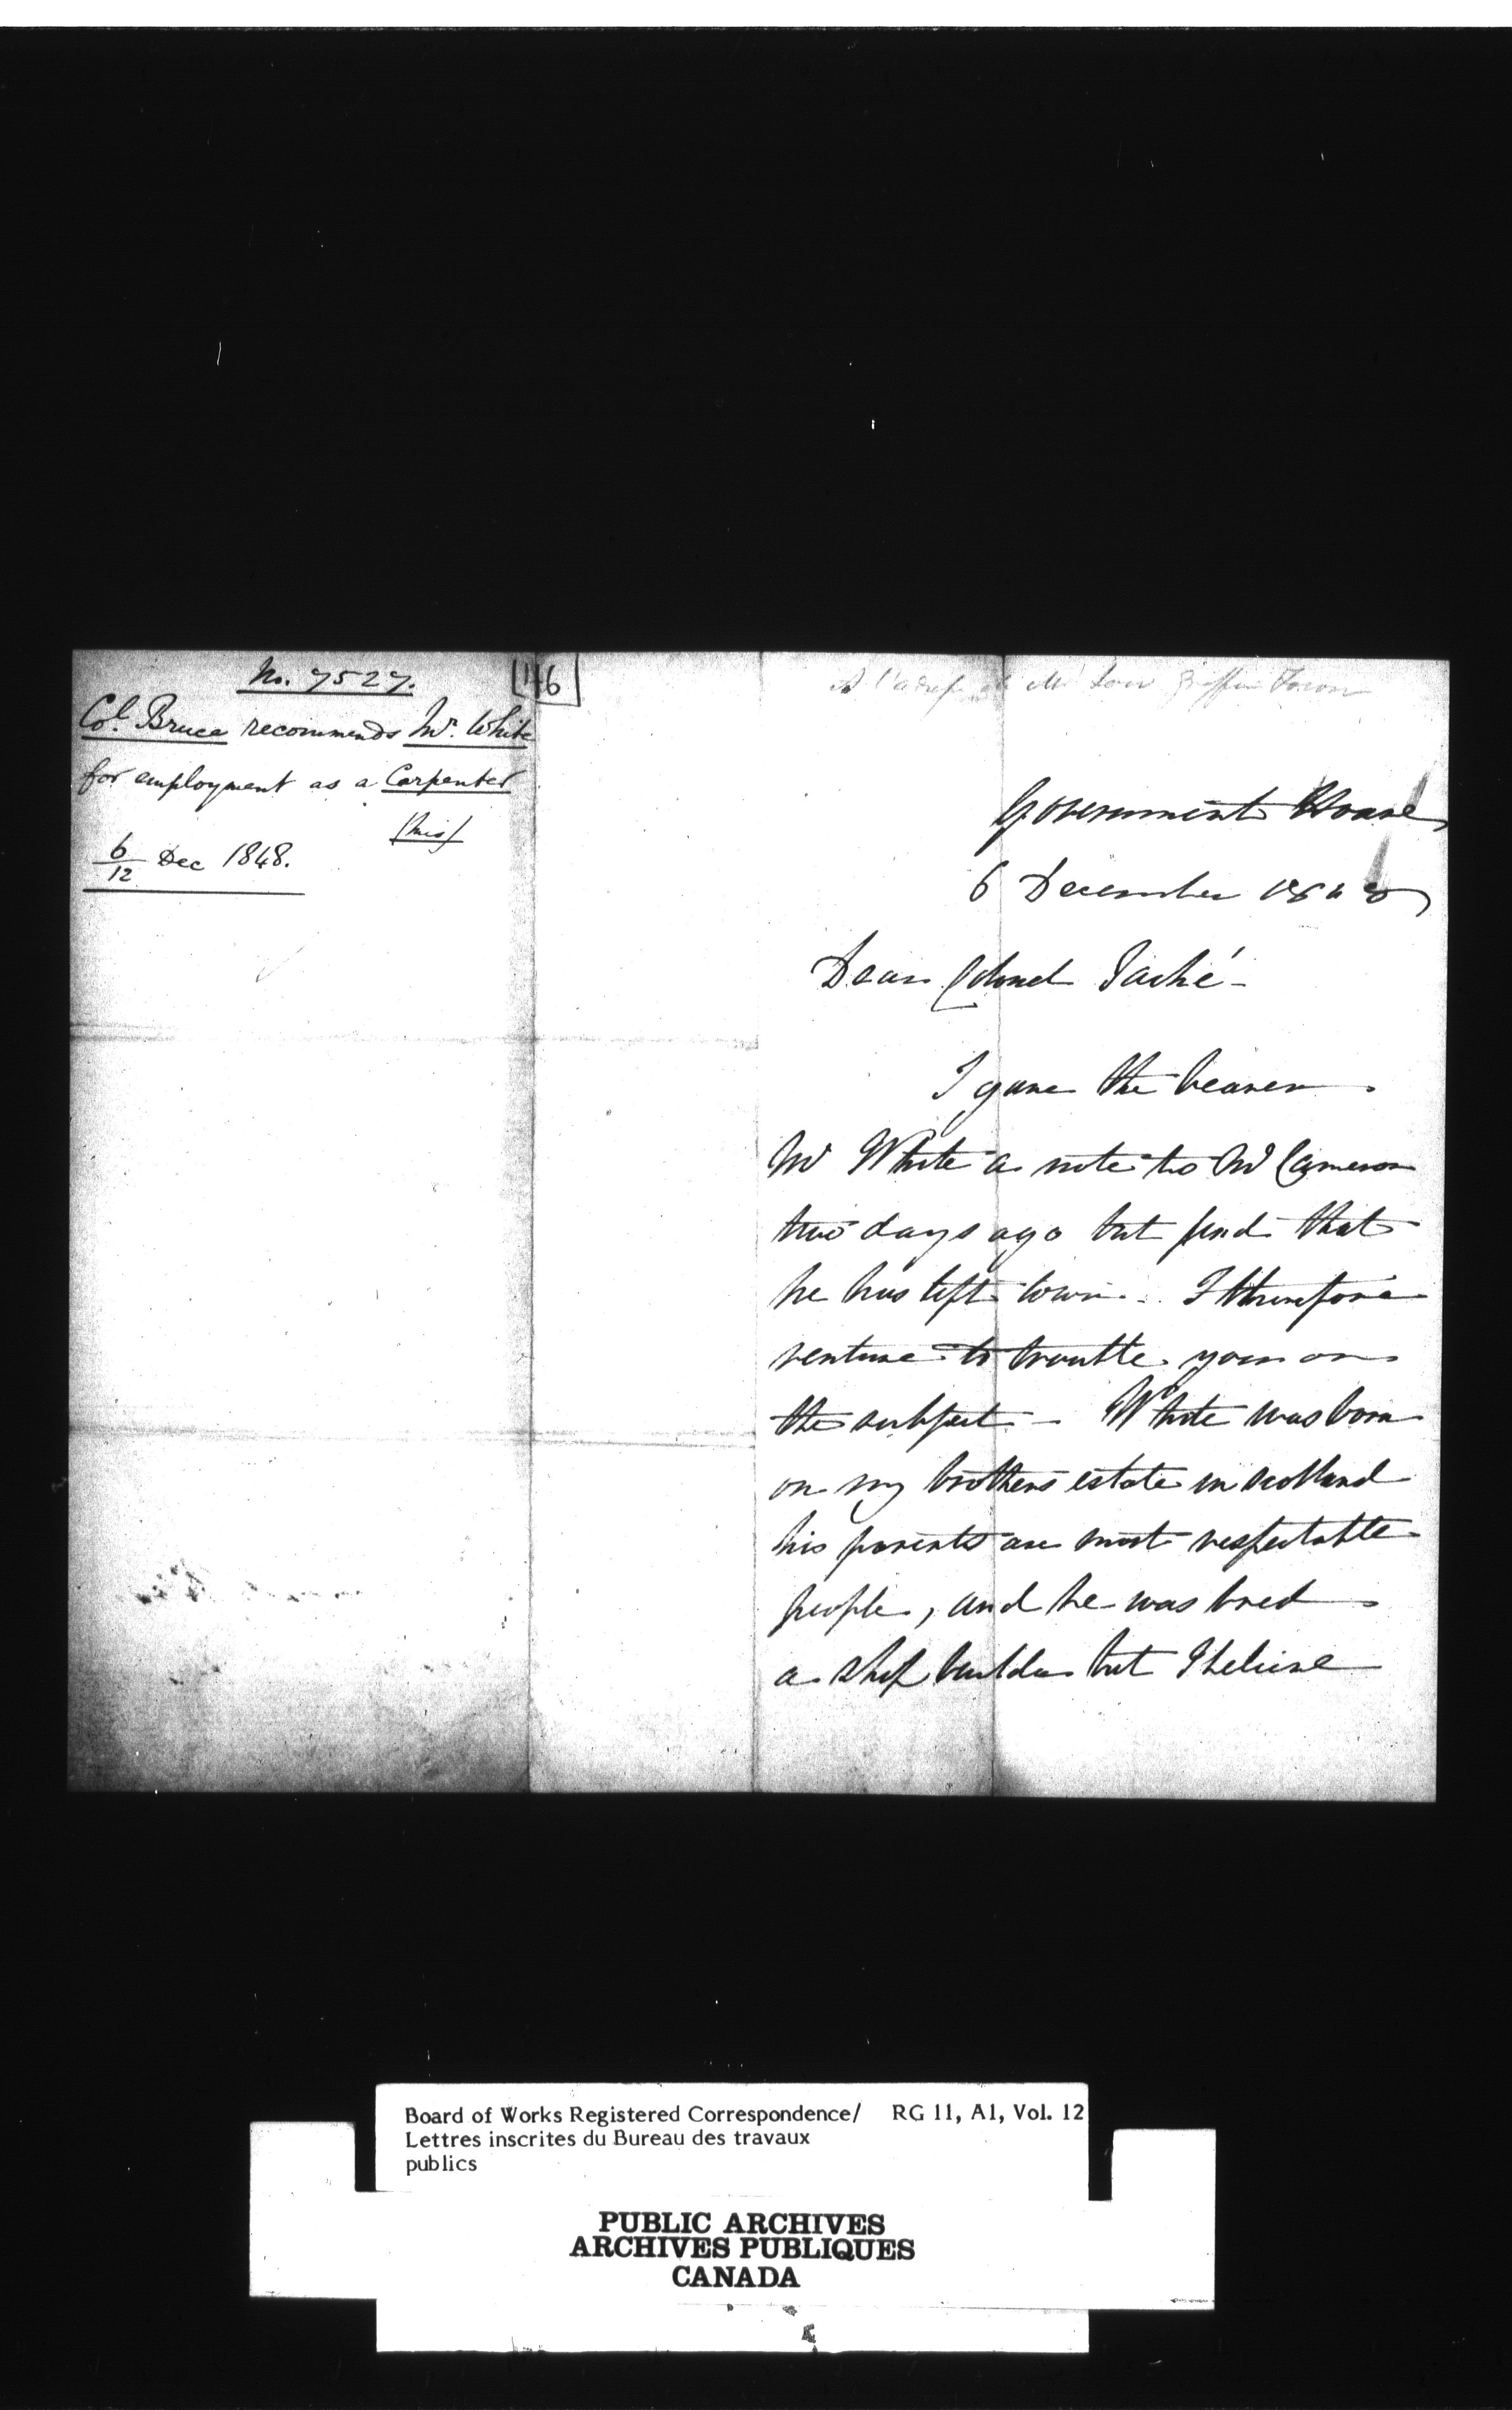 No. 7527.
146
Col. Bruce recommends Mr. White
for employment as a Carpenter
6/12 Dec 1848.
A l'adresse de Mr Low Griffin Town
Government House
6 December 1848
Dear Colonel Taché -
I gave the bearer
Mr White a note to Mr Cameron
two days ago but find that
he has left town. I therefore
venture to trouble you on
the subject - White was born
on my brothers estate in Scotland
his parents are most respectable
people, and he was bred
a ship builder but I believe
Board of Works Registered Correspondence/ RG 11, A1, Vol. 12
Lettres inscrites du Bureau des travaux
publics
PUBLIC ARCHIVES
ARCHIVES PUBLIQUES
CANADA